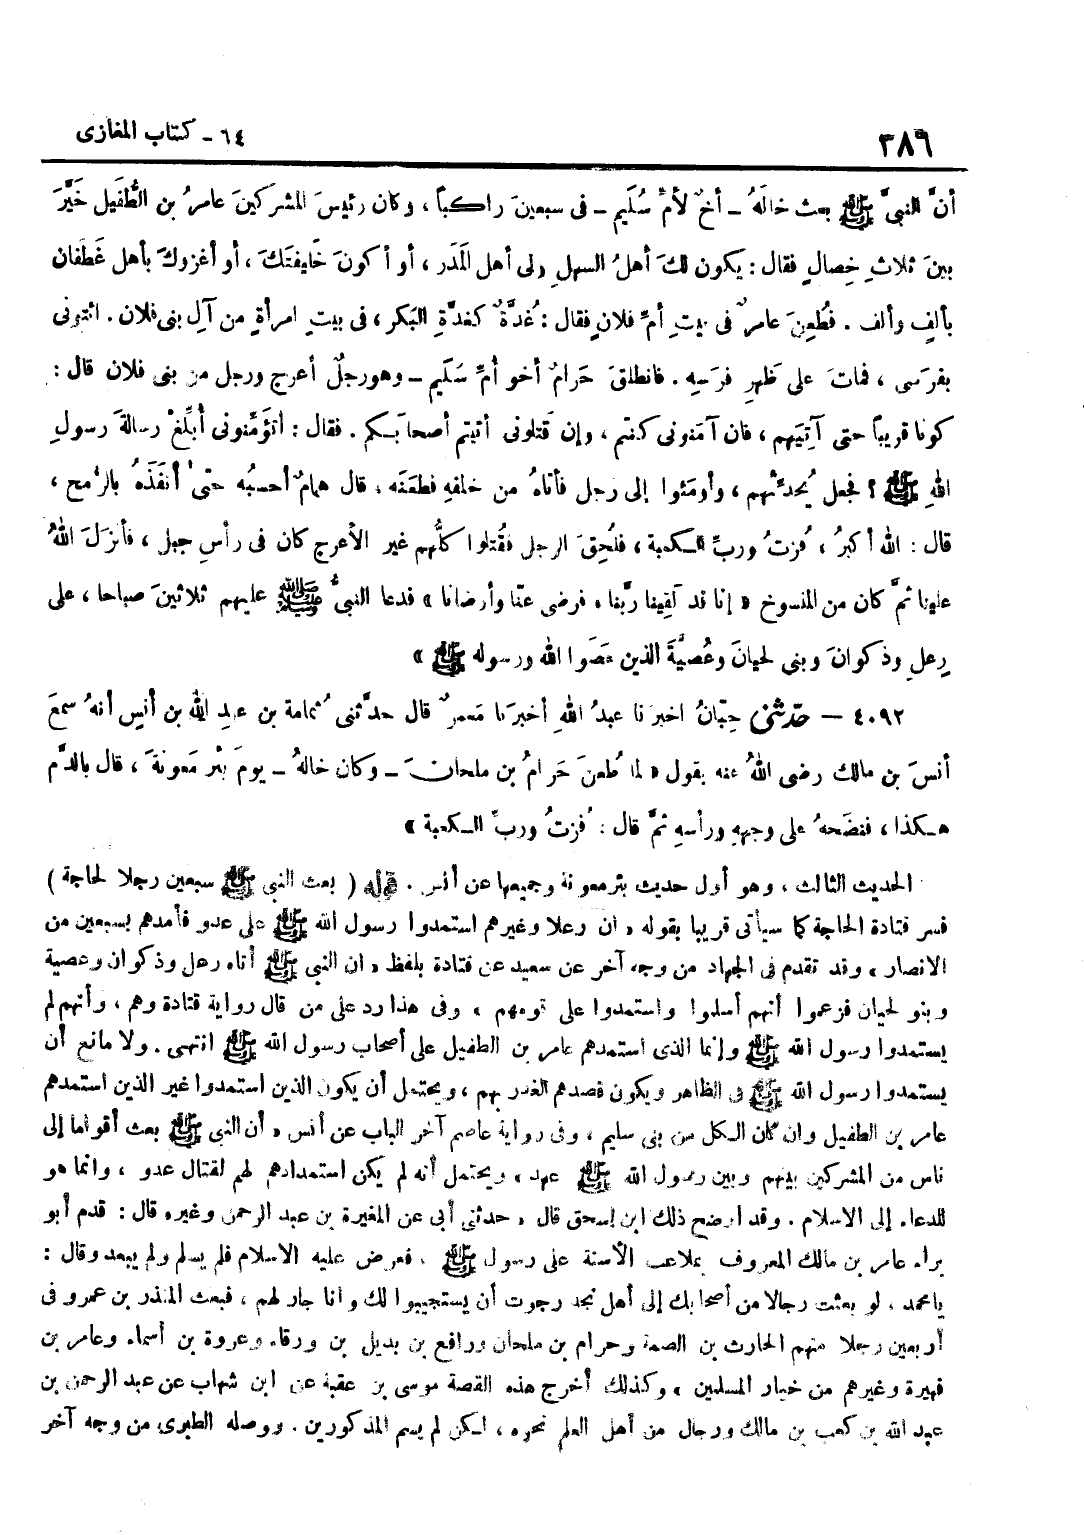 ٣٨٦
٦٤ - كتاب المغازى
أنَّ النبىَّ ﷺ بعث خالَهُ - أخٌ لأمِّ سُلَيم - فى سبعينَ راكباً ، وكان رئيسَ المشركينَ عامرُ بن الطُّفَيل خَيَّرَ
بينَ ثلاثِ خِصالٍ فقال : يكون لكَ أهلُ السهلِ ولى أهل المَدَر ، أو أكونَ خَليفتَكَ ، أو أغزوكَ بأهل غَطَفان
بألفٍ وألف . فطُعِنَ عامرٌ فى بيتِ أمِّ فلانٍ فقال : غُدَّةٌ كغُدَّةِ البَكر ، فى بيتِ امرأةٍ من آلِ بنى فلان . ائتونى
بفرَسى ، فماتَ على ظهرِ فرَسِهِ . فانطلقَ حَرامٌ أخو أمِّ سُلَيم - وهو رجلٌ أعرج ورجل من بنى فلان قال :
كونا قريباً حتى آتِيَهم ، فان آمَنونى كنتم ، وإن قَتلونى أتيتم أصحابَكم . فقال : أتُؤَمِّنونى أُبلِّغْ رسالةَ رسولِ
اللهِ ﷺ ؟ فجعل يُحدِّثهم ، وأومَئوا إلى رجل فأتاهُ من خلفهِ فطعَنَه ، قال همامٌ أحسبُه حتىٰ أنفَذَهُ بالرُّمح ،
قال : الله أكبرُ ، فُزتُ وربِّ الكعبة ، فلُحِقَ الرجل فقُتلوا كلُّهم غير الأعرج كان فى رأسِ جبل ، فأنزلَ اللهُ
علينا ثمَّ كان من المنسوخ « إنا قد لَقِينا ربَّنا ، فرضى عنّا وأرضانا » فدعا النبىُّ ﷺ عليهم ثلاثينَ صباحا ، على
رِعلٍ وذكوانَ وبنى لحيانَ وعُصيَّةَ الذين عَصَوا الله ورسوله ﷺ »
٤٠٩٢ - حدّثنى حِبّانُ اخبرَنا عبدُ اللهِ أخبرَنا مَعمرٌ قال حدَّثنى ثمامة بن عبدِ اللهِ بن أنس أنهُ سمعَ
أنسَ بن مالك رضى اللهُ عنه يقول « لما طُعنَ حَرامُ بن ملحان - وكان خالهُ - يومَ بئر مَعونةَ ، قال بالدَّم
هكذا ، فنضَحهُ على وجههِ ورأسهِ ثمَّ قال : فُزتُ وربِّ الكعبة »
الحديث الثالث ، وهو أول حديث بئر معونة وجميعها عن أنس . قوله ( بعث النبى ﷺ سبعين رجلا لحاجة )
فسر قتادة الحاجة كما سيأتى قريبا بقوله « ان رعلا وغيرهم استمدوا رسول الله ﷺ على عدو فأمدهم بسبعين من
الانصار » وقد تقدم فى الجهاد من وجه آخر عن سعيد عن قتادة بلفظ « ان النبى ﷺ أتاه رعل وذكوان وعصية
وبنو لحيان فزعموا أنهم أسلموا واستمدوا على قومهم » وفى هذا رد على من قال رواية قتادة وهم ، وأنهم لم
يستمدوا رسول الله ﷺ وإنما الذى استمدهم عامر بن الطفيل على أصحاب رسول الله ﷺ انتهى . ولا مانع أن
يستمدوا رسول الله ﷺ فى الظاهر ويكون قصدهم الغدر بهم ، ويحتمل أن يكون الذين استمدوا غير الذين استمدهم
عامر بن الطفيل وان كان الكل من بنى سليم ، وفى رواية عاصم آخر الباب عن أنس « أن النبى ﷺ بعث أقواما إلى
ناس من المشركين بينهم وبين رسول الله ﷺ عهد » ويحتمل أنه لم يكن استمدادهم لهم لقتال عدو ، وانما هو
للدعاء إلى الاسلام . وقد اوضح ذلك ابن إسحق قال « حدثنى أبى عن المغيرة بن عبد الرحمن وغيره قال : قدم أبو
براء عامر بن مالك المعروف بملاعب الأسنة على رسول ﷺ ، فعرض عليه الاسلام فلم يسلم ولم يبعد وقال :
يا محمد ، لو بعثت رجالا من أصحابك إلى أهل نجد رجوت أن يستجيبوا لك وانا جار لهم ، فبعث المنذر بن عمرو فى
أربعين رجلا منهم الحارث بن الصمة وحرام بن ملحان ورافع بن بديل بن ورقاء وعروة بن أسماء وعامر بن
فهيرة وغيرهم من خيار المسلمين » وكذلك أخرج هذه القصة موسى بن عقبة عن ابن شهاب عن عبد الرحمن بن
عبد الله بن كعب بن مالك ورجال من أهل العلم نحوه ، لكن لم يسم المذكورين . ووصله الطبرى من وجه آخر